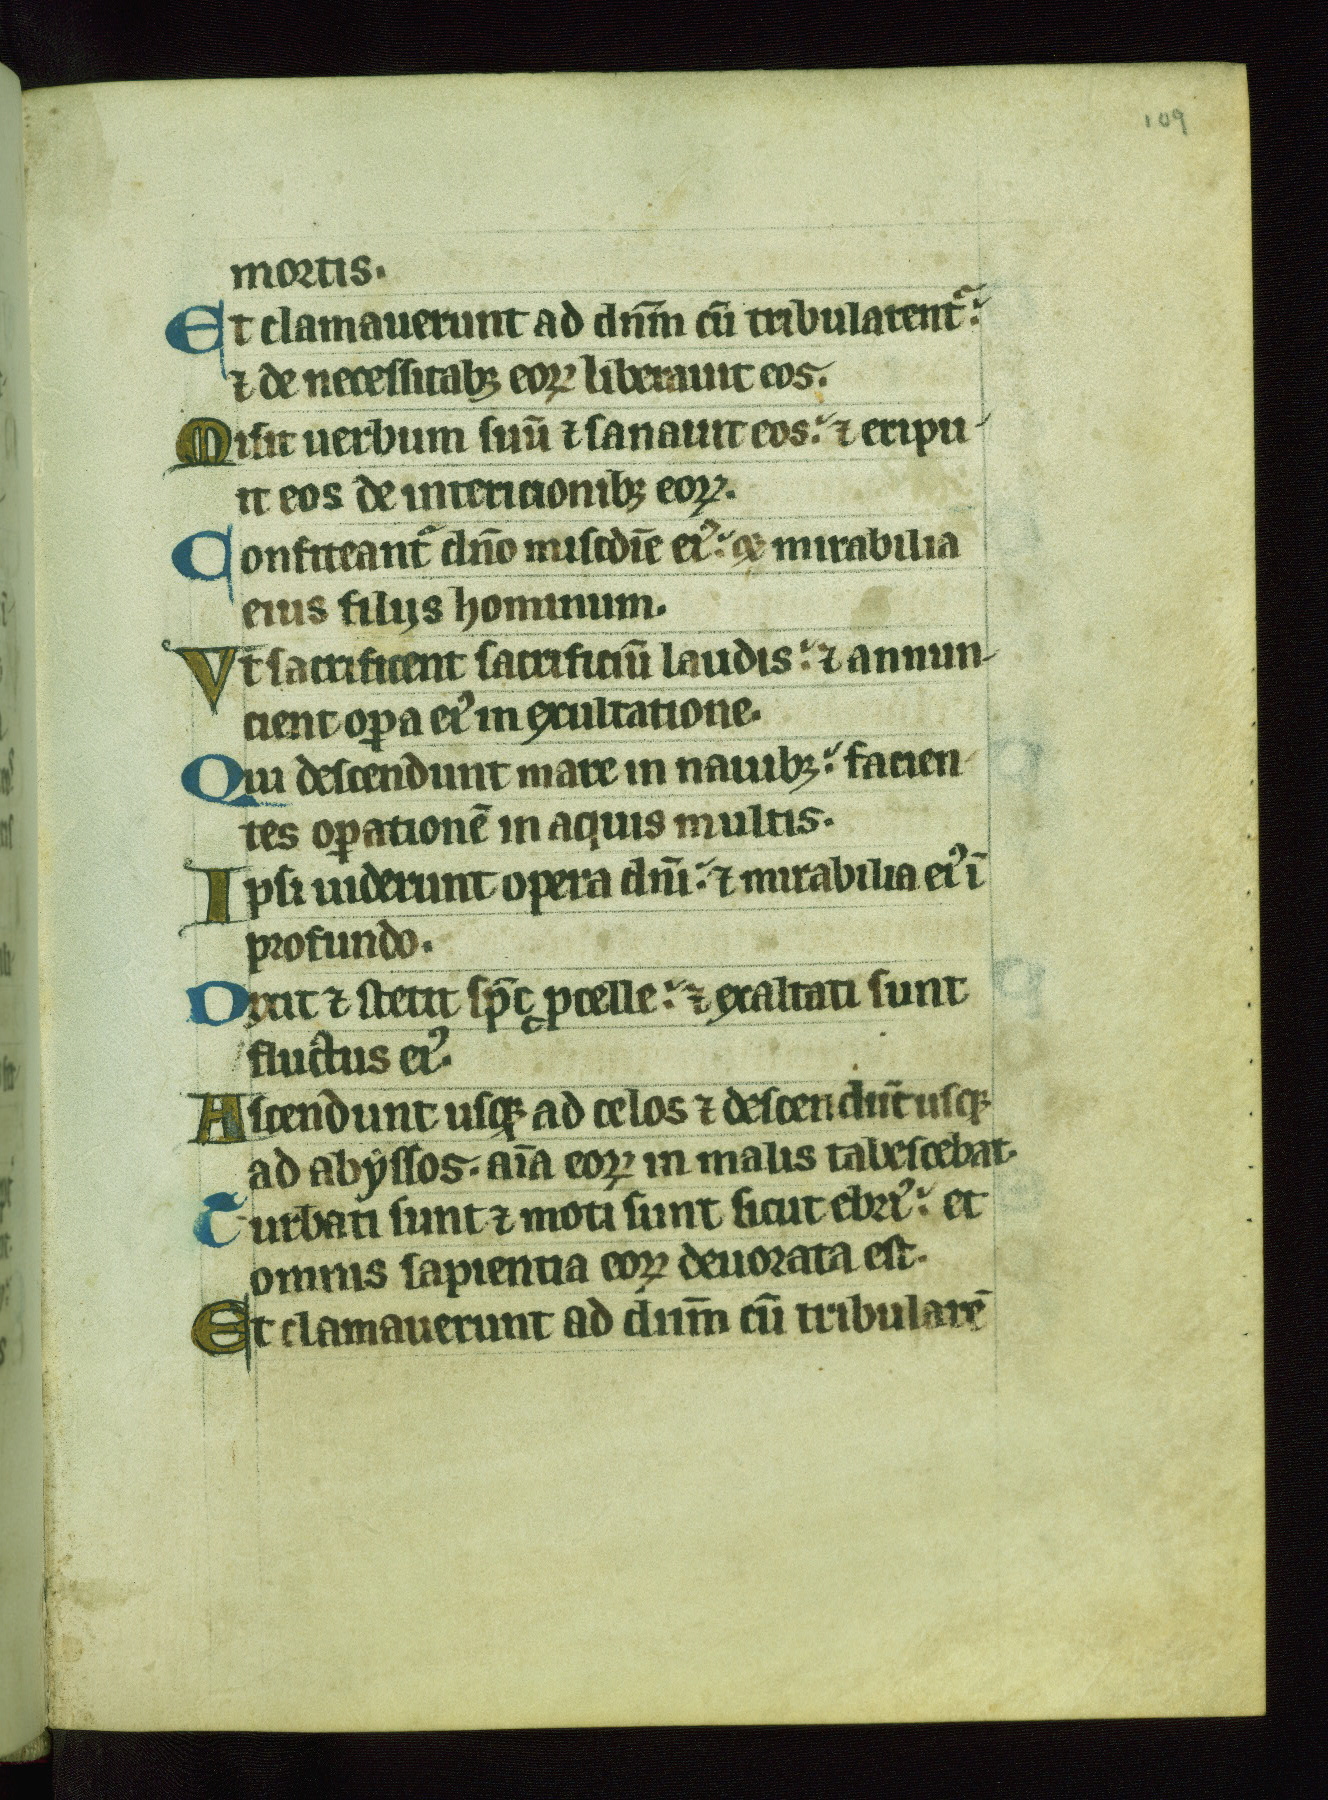 109
mortis.
Et clamauerunt ad dn̄m cū tribularent᷑:
⁊ de necessitabꝫ eoꝝ liberauit eos.
Misit uerbum suū ⁊ sanauit eos: ⁊ eripu-
it eos de interitionibꝫ eoꝝ.
Confiteant᷑ dn̄o misc̄die eiꝰ: ꝙ mirabilia
eius filijs hominum.
Vt sacrificent sacrificiū laudis: ⁊ annun-
tient oꝑa eiꝰ in exultatione.
Qui descendunt mare in nauibꝫ: facien-
tes oꝑationē in aquis multis.
Ipsi uiderunt opera dn̄i: ⁊ mirabilia eiꝰ ī
profundo.
Dixit ⁊ stetit sp̄c ꝓcelle: ⁊ exaltati sunt
fluctus eiꝰ.
Ascendunt usqꝫ ad celos ⁊ descendūt usqꝫ
ad abyssos. aīa eoꝝ in malis tabescebat.
Turbati sunt ⁊ moti sunt sicut ebriꝰ: et
omnis sapientia eoꝝ deuorata est.
Et clamauerunt ad dn̄m cū tribularē